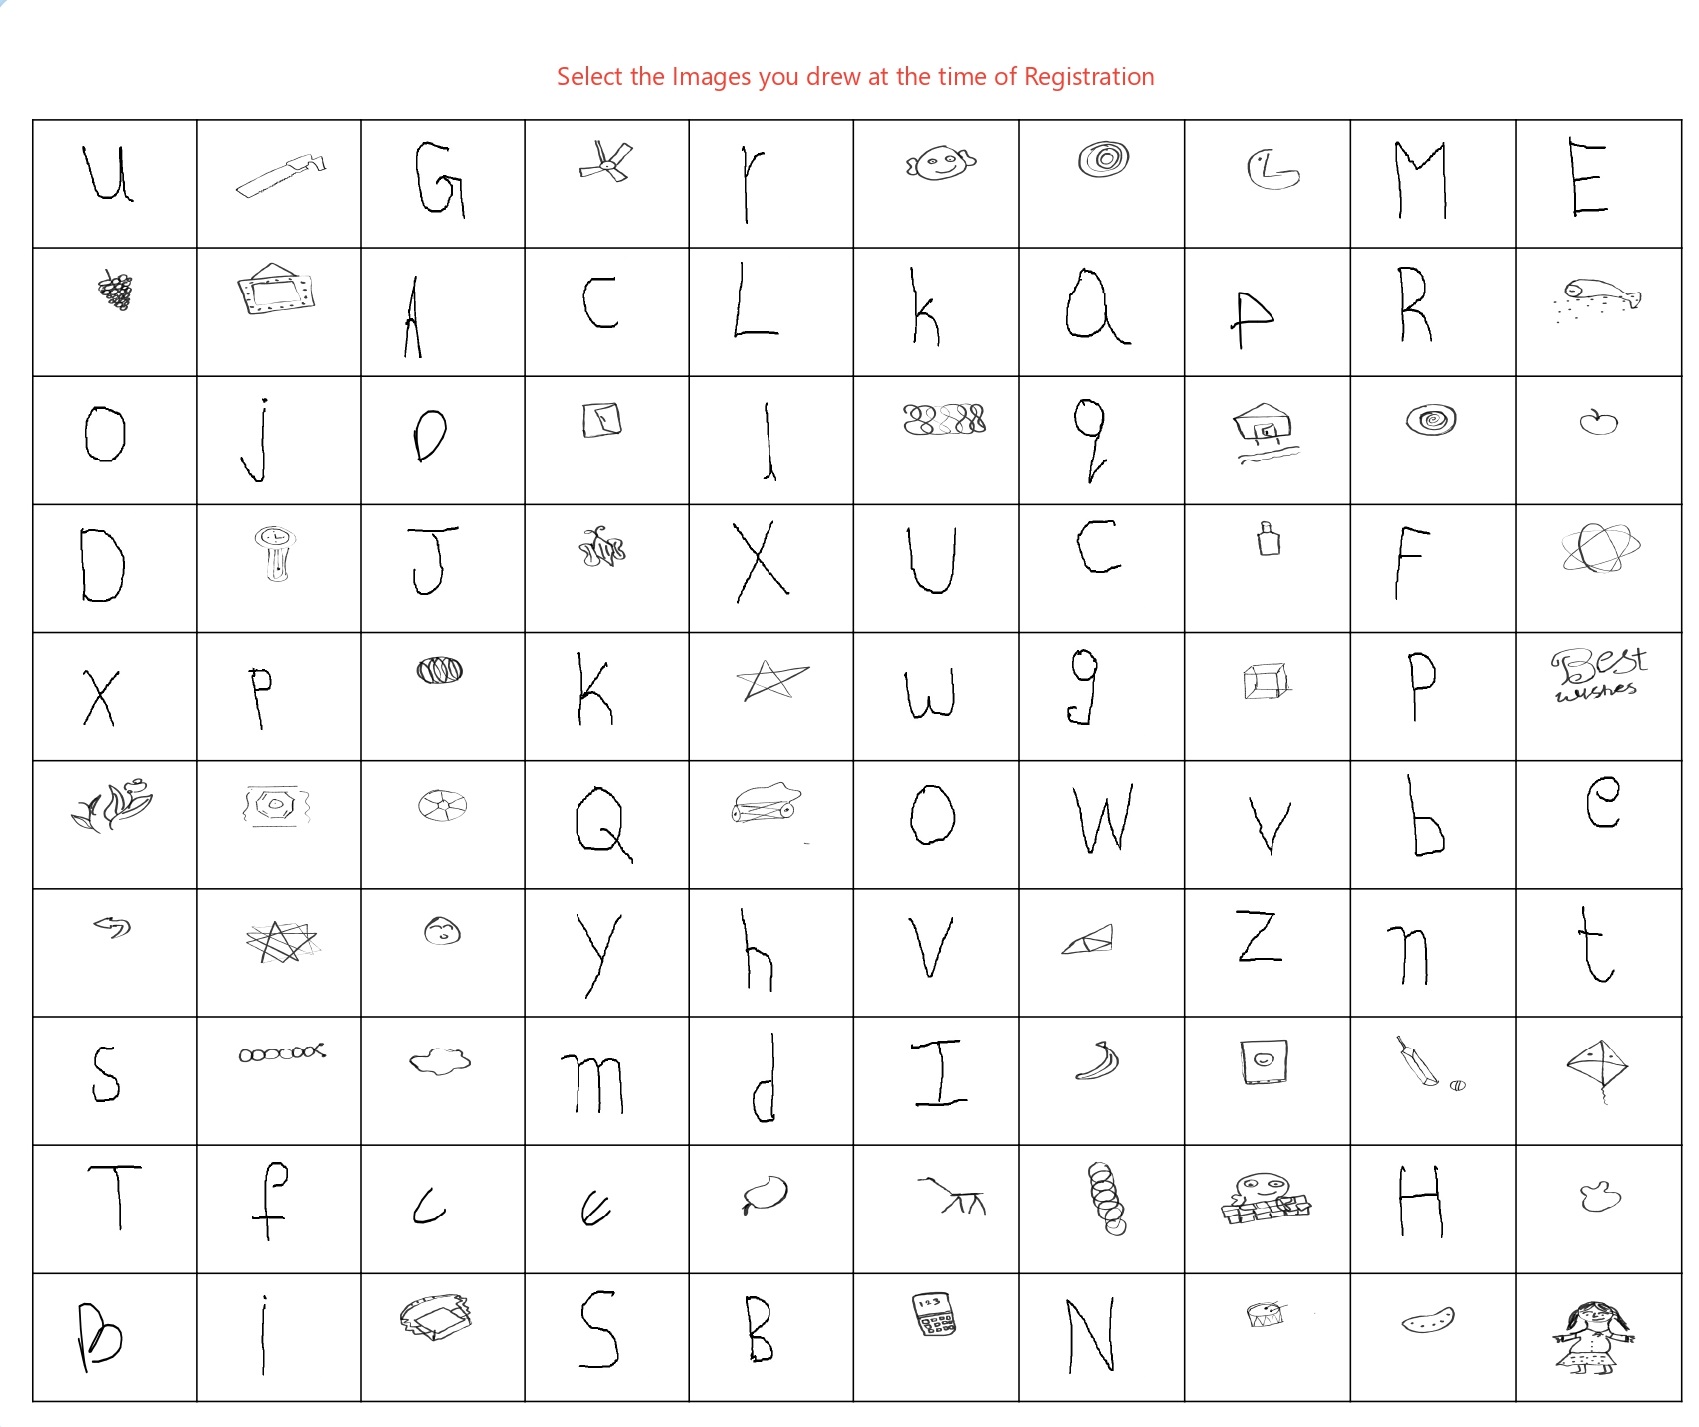 Select the Images you drew at the time of Registration
U G r M E
A C L k a p R
O j D l q
D J X U C F
X P K w g P Best
wishes
Q O W v b e
y h V Z n t
S m d I
T f c e H
B i S B 123 N